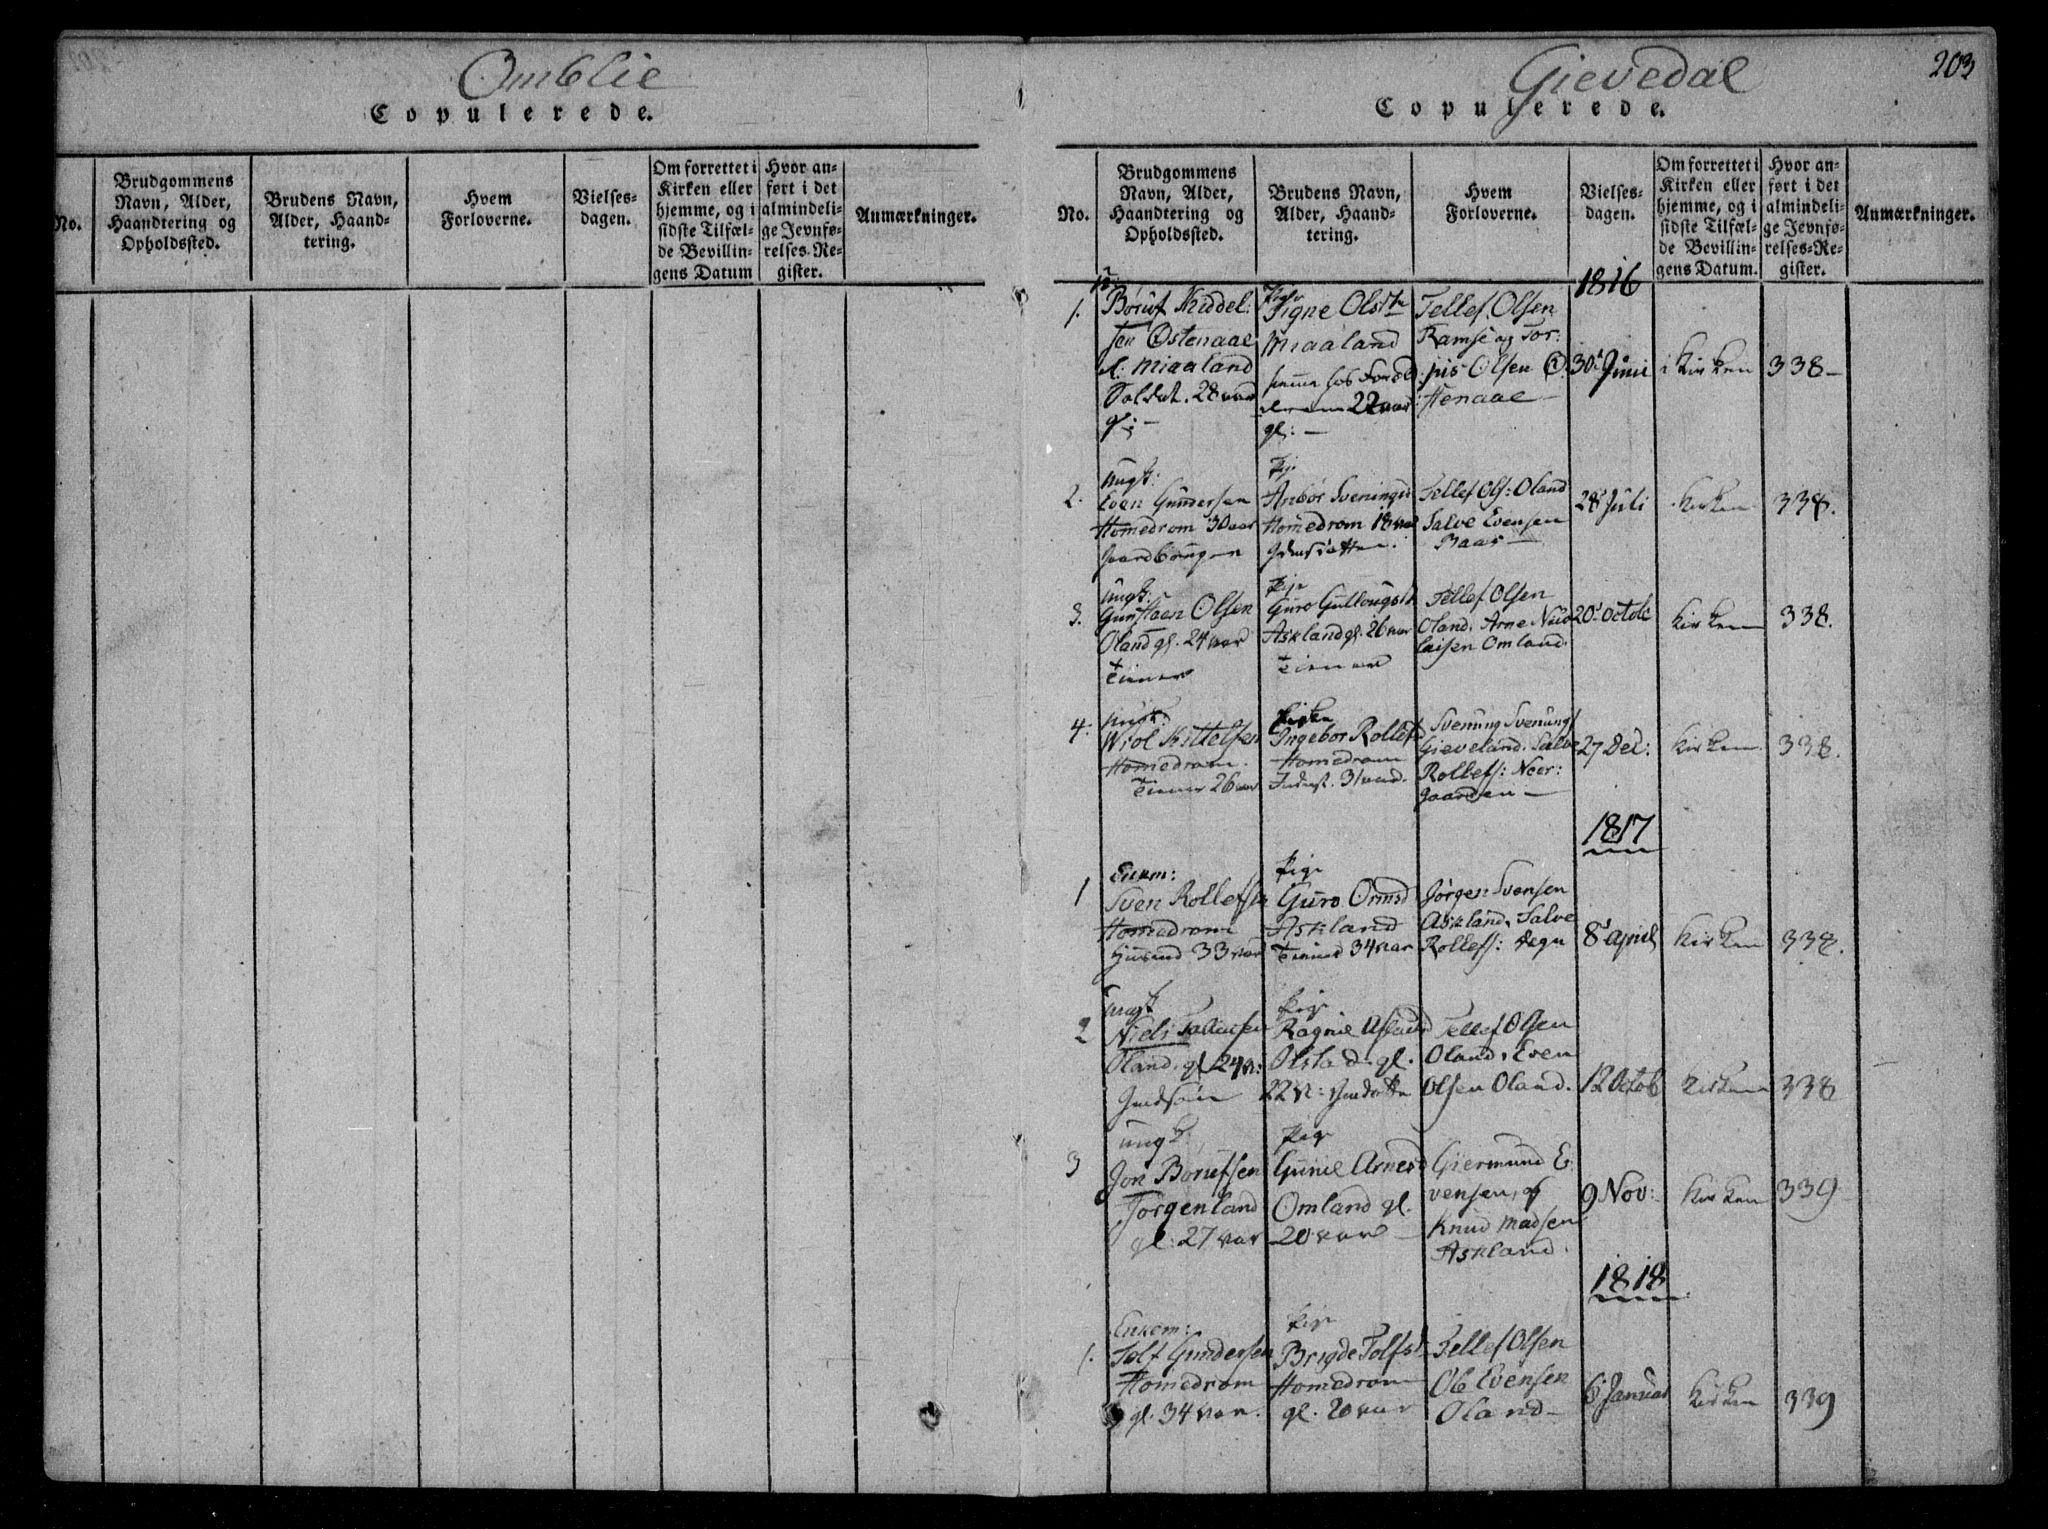 Omblie
Copulerede.
No.
Brudgommens
Navn, Alder,
Haandtering og
Opholdssted.
Brudens Navn,
Alder, Haand-
tering.
Hvem
Forloverne.
Vielses-
dagen.
Om forrettet i
Kirken eller
hjemme, og i
sidste Tilfæl-
de Bevillin-
gens Datum
Hvor an-
ført i det
almindeli-
ge Jevnfø-
relses-Re-
gister.
Anmærkninger.
203
Gievedal
Copulerede.
No.
Brudgommens
Navn, Alder,
Haandtering og
Opholdssted.
Brudens Navn,
Alder, Haand-
tering.
Hvem
Forloverne.
Vielses-
dagen.
Om forrettet i
Kirken eller
hjemme, og i
sidste Tilfæl-
de Bevillin-
gens Datum.
Hvor an-
ført i det
almindeli-
ge Jevnfø-
relses-Re-
gister.
Anmærkninger.
1816
1.
Pige
Signe Olsdtr
Miaaland
22 aar
gl:
Tellef Olsen
Ramse og Tor:
jus Olsen
Henaae
Miaaland
Soldat. 28 aar
gl:
30 Juni
i Kirken
338
2.
ungk:
Even Gundersen
Homedrom 30 aar
Gaardbrugen
Pige
Anbor Svenings
Homedrom 18 aar
Tellef Ols: Oland
Salve Evensen
Baas
28 Juli
Kirken
338.
3.
ungk:
Gunstaen Olsen
Oland gl. 24 aar
Tiener
Pige
Askland gl. 26 aar
Tiener
Tellef Olsen
Oland. Arne Nico
laisen Omland.
20 Octob
Kirken
338.
4.
ungk:
Wiol Kittelsen
Homedrom.
Tiener 26 aar
Pigen
Ingebor Rollefs
Homedrom
Inderst. 31 aar
Svenung Svenungs
Gieveland. Salve
Rollefs: Neer:
gaarden
27 Dec:
Kirken
338.
1817
1
Enkem:
Sven Rollefsen
Homedrom
Huusmd 33 aar
Pige
Guro Ormsd
Askland
Tiener 34 aar
Jørgen Svensen
Askland. Salve
Rollefs:
8 April
Kirken
338.
2
ungk
Niels
Oland. gl 24 A:
Pige
Olstad. gl.
22 A:
Tellef Olsen
Oland. Even
Olsen Oland.
12 Octob
Kirken
338
3
ungk
Jon Børufsen
Torgenland
gl: 27 aar
Pige
Gunil Arnesd
Omland gl.
20 aar
Giermund E
vensen, og
Knud Madsen
Askland.
9 Nov:
Kirken
339
1818
1.
Enkem:
Tolf Gundersen
Homedrom
gl. 34 aar.
Pige
Brigde Tolfs
Homedrom
gl. 20 aar
Tellef Olsen
Ole Evensen
Oland
6 Januar
Kirken
339